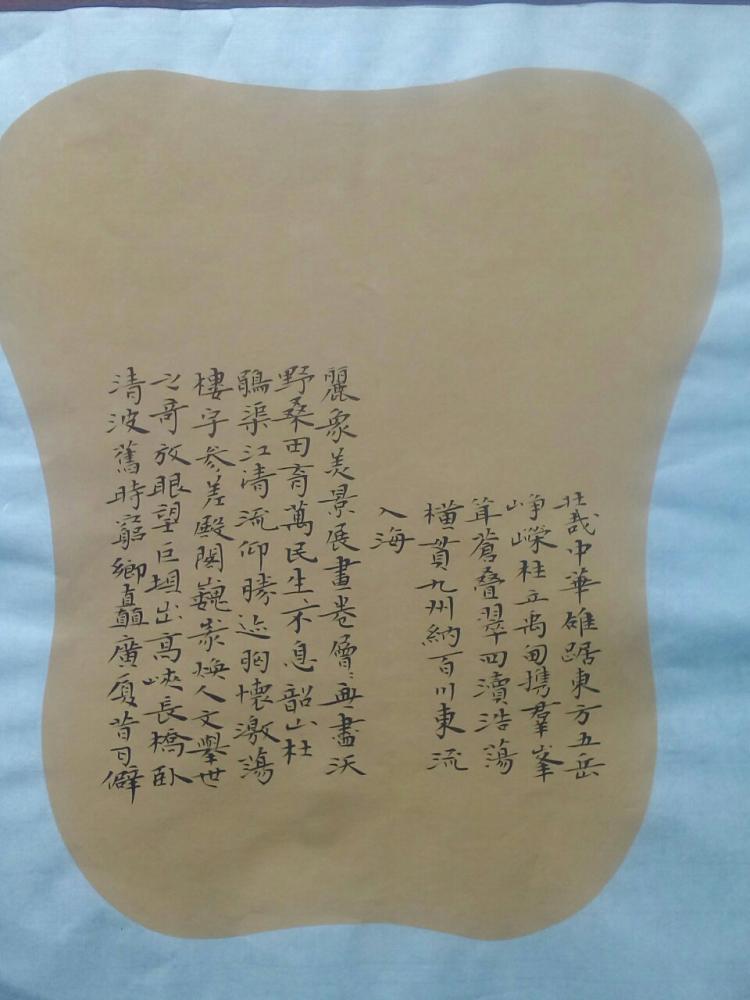 壯哉中華雄踞東方五岳
崢嶸柱立禹甸携羣峯
聳蒼叠翠四瀆浩蕩
橫貫九州納百川東流
入海
麗象美景展畫卷層〻無盡沃
野桑田育萬民生〻不息韶山杜
鵑渠江清流仰勝迹胸懷激蕩
樓宇参差殿閣巍峩煥人文舉世
之哥放眼望巨垻出高峽長橋臥
清波舊時窮鄉矗廣厦昔日僻